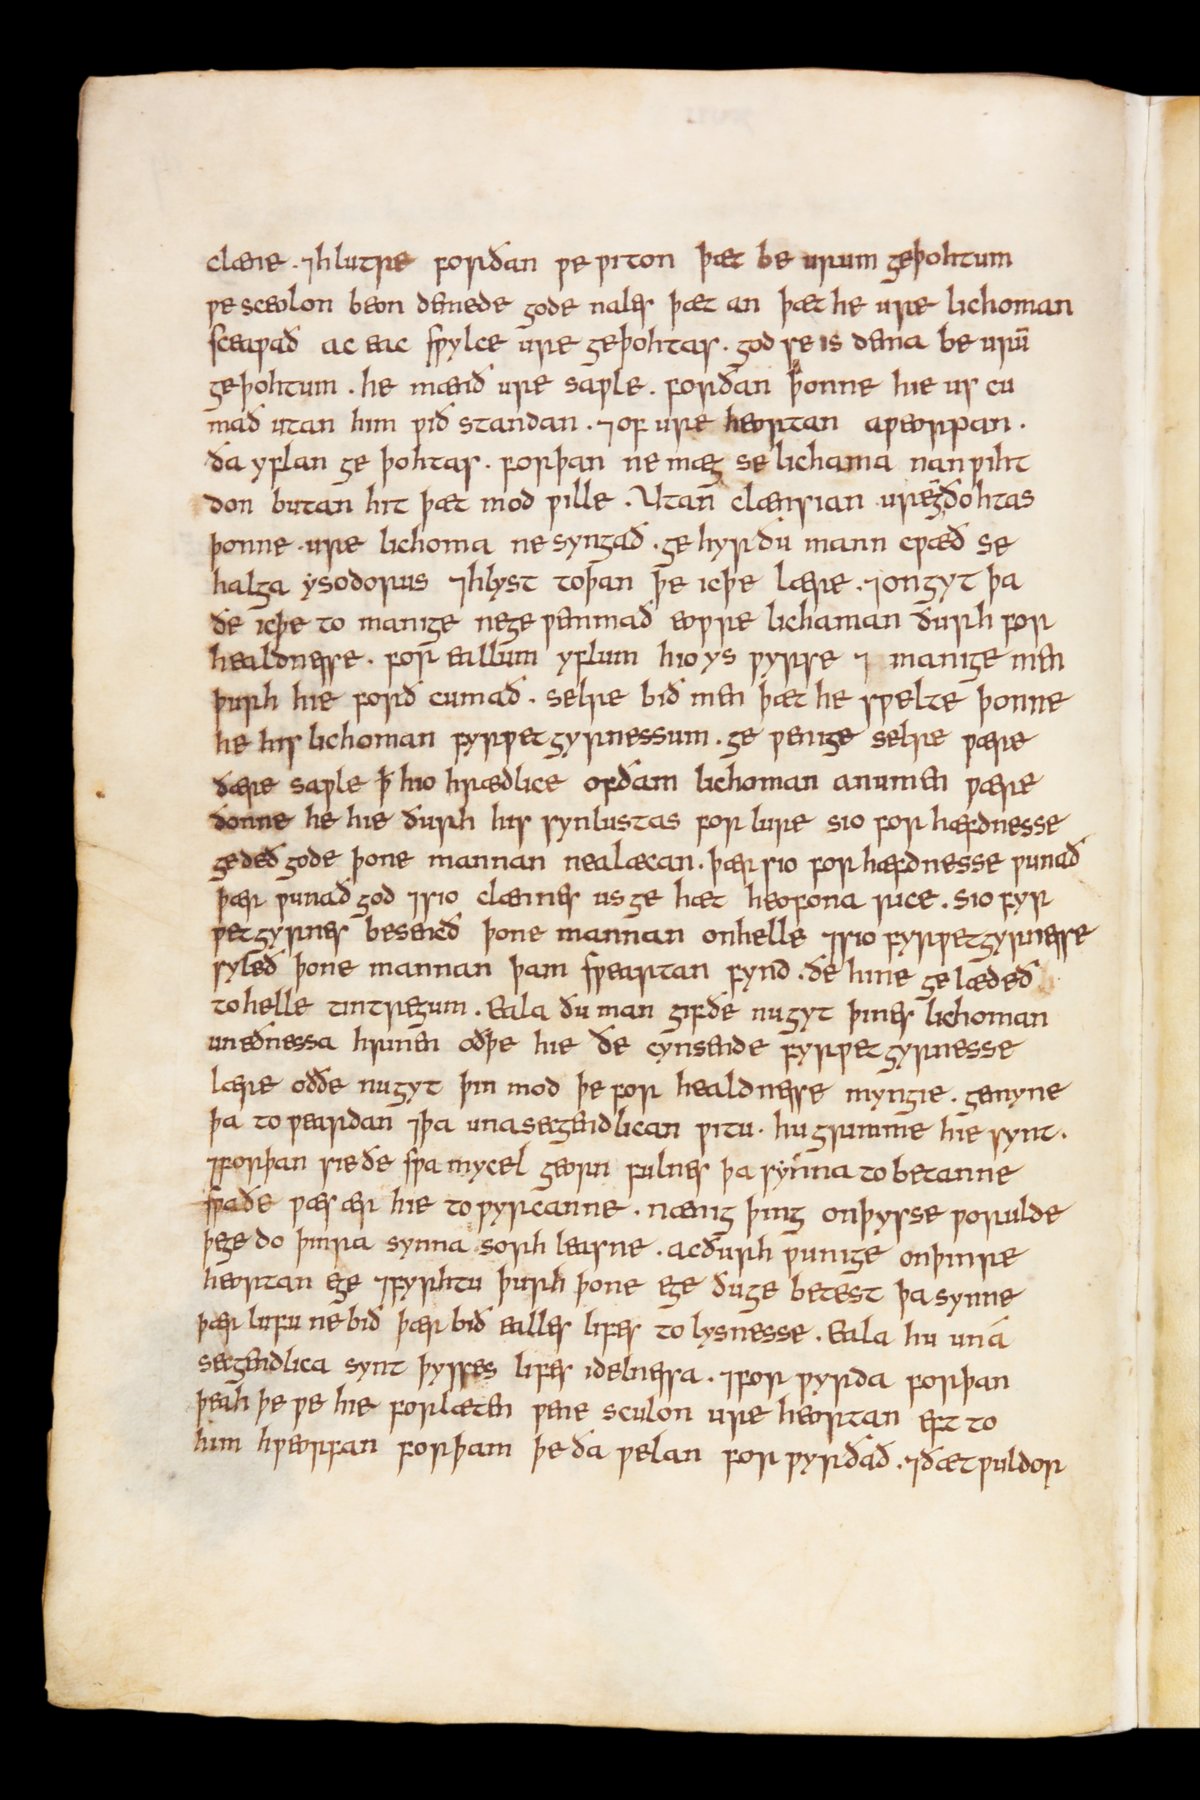 clæne . ⁊ hlutre forðan ƿe ƿiton þæt be urum geþohtum
ƿe sceolon beon demede gode nales þæt an þæt he ure lichoman
sceaƿað ac eac sƿylce ure geþohtas . god se is dema be urū
geþohtum . he mænð ure saƿle . forðan þonne hie us cu
mað utan him ƿið standan . ⁊ of ure heortan aƿeorpan .
ða yflan ge þohtas . forþan ne mæg se lichama nan ƿiht
don butan hit þæt mod ƿille . Utan clænsian ure geðohtas
þonne . ure lichoma ne syngað . gehyr ðu mann cƿæð se
halga ysodorus ⁊ hlyst to þan þe ic þe lære . ⁊ ongyt þa
ðe ic þe to manige ne ge ƿemmað eoƿre lichaman ðurh for
healdnesse . for eallum yflum hio ys ƿyrse ⁊ manige men
þurh hie forð cumað . selre bið men þæt he sƿelte þonne
he his lichoman fyrƿet gyrnessum . ge ƿenige selre ƿære
ðære saƿle þ̄ hio hrædlice of ðam lichoman anumen ƿære
ðonne he hie ðurh his synlustas for lure sio for hæfdnesse
ge deð gode þone mannan nealæcan . þær sio for hæfdnesse ƿunað
þær ƿunað god ⁊ sio clænnes us ge hæt heofona rice . sio fyr
ƿet gyrnes besencð þone mannan on helle ⁊ sio fyrƿet gyrnesse
syleð þone mannan þam sƿeartan fynd . ðe hine ge lædeð
to helle tintregum . Eala ðu man gif ðe nu gyt þines lichoman
uneðnessa hrinen oðþe hie ðe cynsende fyrƿet gyrnesse
lære oððe nu gyt þin mod þe for healdnesse myngie . gemyne
þa to ƿeardan ⁊ þa unasecgendlican ƿitu . hu grimme hie synt .
⁊ forþan sie ðe sƿa mycel georn fulnes þa synna to betanne
sƿa ðe ƿæs ær hie to ƿyrcanne . nænig þing on þysse ƿorulde
þe ge do þinra synna sorh learne . ac ðurh ƿunige on þinre
heortan ege ⁊ fyrhtu þurh þone ege ðu ge betest þa synne
þær lufu ne bið þær bið ealles lifes to lysnesse . Eala hu una
secgendlica synt þysses lifes idelnessa . ⁊ for ƿyrda forþan
þeah þe ƿe hie forlæten ƿene sculon ure heortan eft to
him hƿeorfan for þam þe ða ƿelan for ƿyrðað . ⁊ ðæt ƿuldor